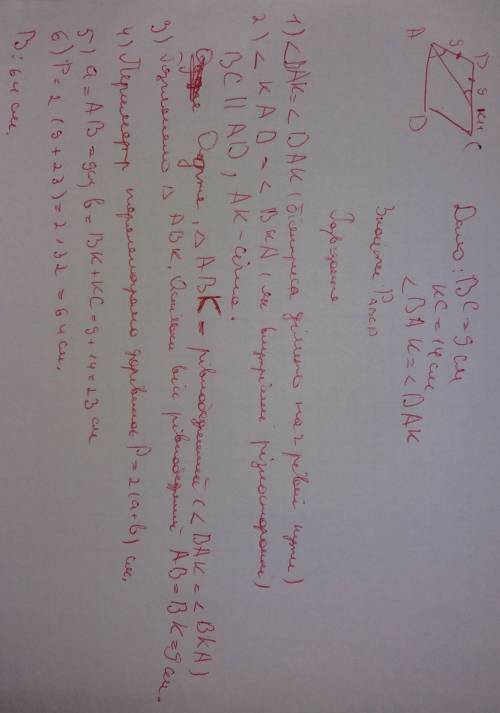 B
9
9
K
14
C
A
D
Дано: BC = 9 см
KC = 14 см
<BAK = <DAK
Знайти: P
Розв'язання
1) <DAK = <DAK (бісектриса ділить на 2 рівні кути)
2) <KAD = <BKA (як внутрішні різносторонні)
BC || AD, AK – січна.
Отже, △ABK = рівнобедрений (<BAK = <BKA)
3) Розглянемо △ABK. Оскільки він рівнобедрений AB = BK = 9 см.
4) Периметр паралелограма дорівнює P = 2(a+b) см.
5) a = AB = 9 см, b = BK + KC = 9 + 14 = 23 см
6) P = 2(9+23) = 2·32 = 64 см.
В: 64 см.